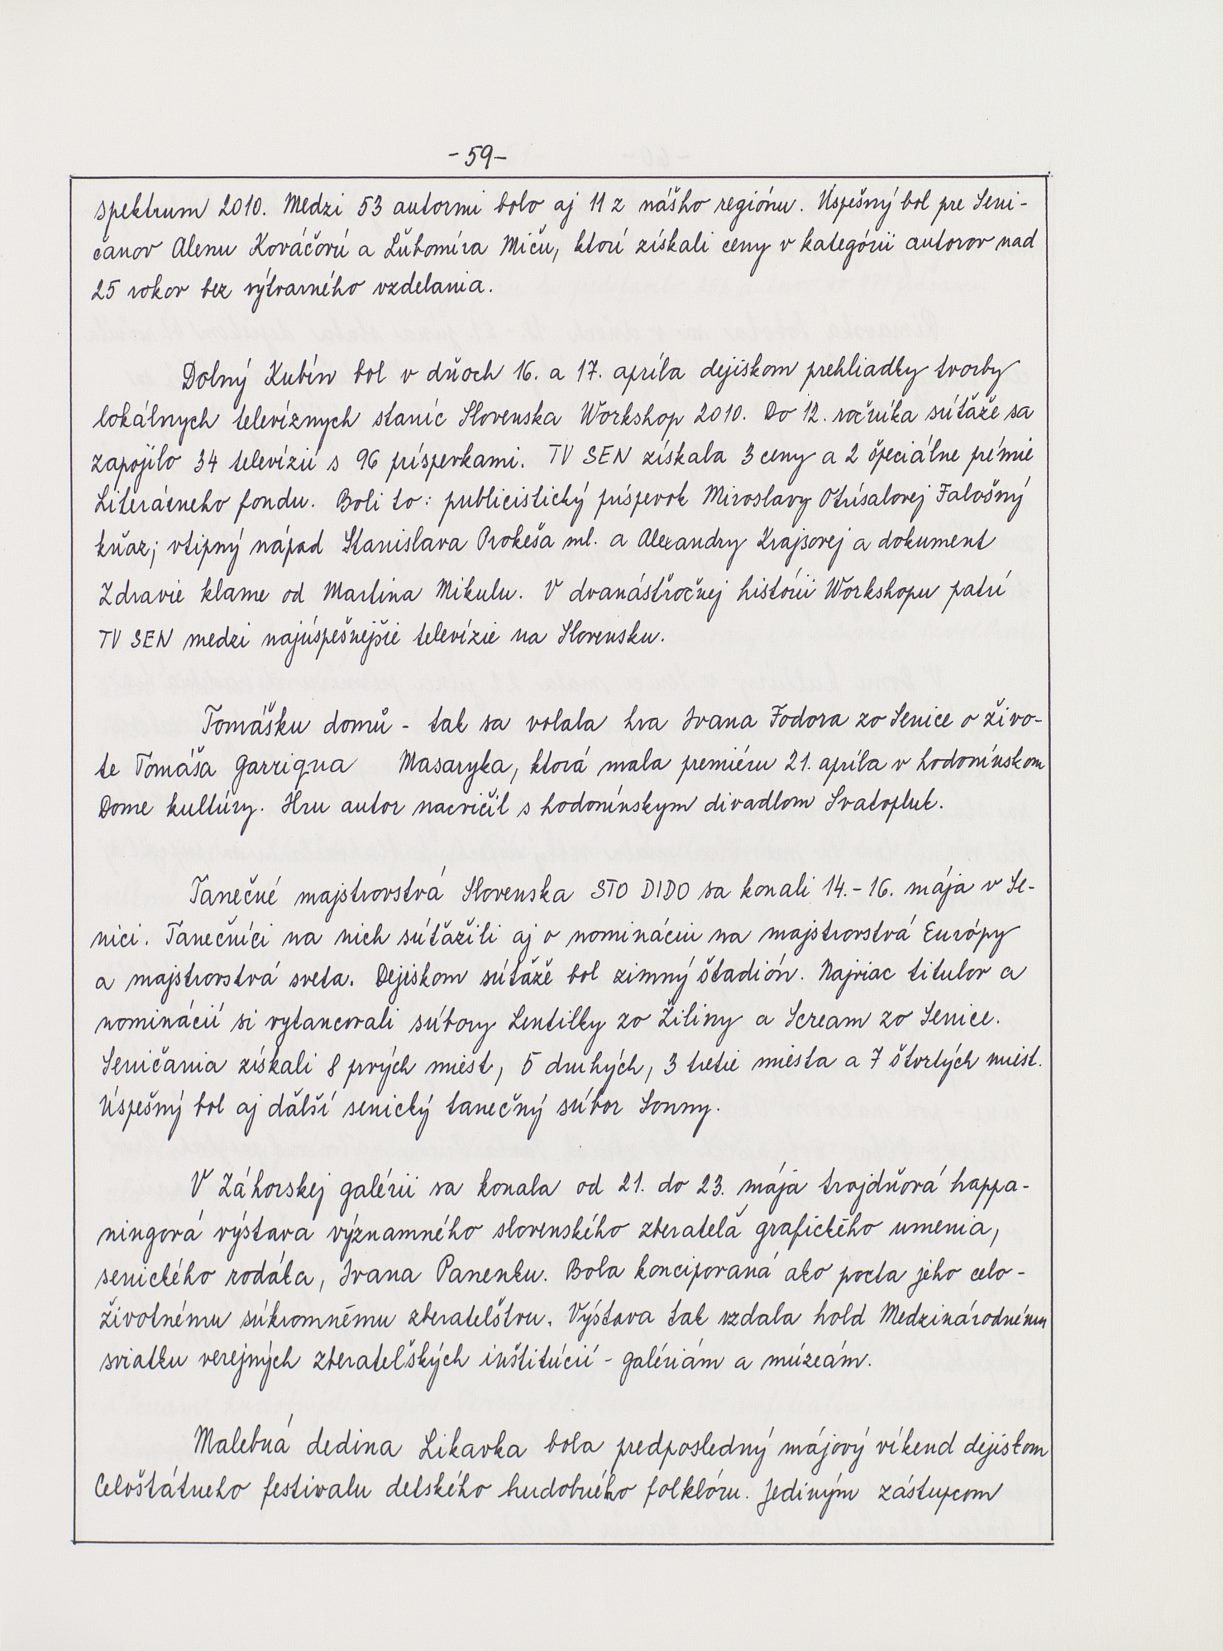 -59-
spektrum 2010. Medzi 53 autormi bolo aj 11 z nášho regiónu. Úspešný bol pre Seni-
čanov Alenu Kováčovú a Ľubomíra Miču, ktorí získali ceny v kategórii autorov nad
25 rokov bez výtvarného vzdelania.
Dolný Kubín bol v dňoch 16. a 17. apríla dejiskom prehliadky tvorby
lokálnych televíznych staníc Slovenska Workshop 2010. Do 12. ročníka súťaže sa
zapojilo 34 televízií s 96 príspevkami. TV SEN získala 3 ceny a 2 špeciálne prémie
Literárneho fondu. Boli to: publicistický príspevok Miroslavy Otrísalovej Falošný
kňaz; vtipný nápad Stanislava Prokeša ml. a Alexandry Krajsovej a dokument
Zdravie klame od Martina Mikulu. V dvanásťročnej histórii Workshopu patrí
TV SEN medzi najúspešnejšie televízie na Slovensku.
Tomášku domů - tak sa volala hra Ivana Fodora zo Senice o živo-
te Tomáša Garrigua Masaryka, ktorá mala premiéru 21. apríla v hodonínskom
Dome kultúry. Hru autor nacvičil s hodonínskym divadlom Svatopluk.
Tanečné majstrovstvá Slovenska STO DIDO sa konali 14.-16. mája v Se-
nici. Tanečníci na nich súťažili aj o nomináciu na majstrovstvá Európy
a majstrovstvá sveta. Dejiskom súťaže bol zimný štadión. Najviac titulov a
nominácií si vytancovali súbory Lentilky zo Žiliny a Scream zo Senice.
Seničania získali 8 prvých miest, 5 druhých, 3 tretie miesta a 7 štvrtých miest.
Úspešný bol aj ďalší senický tanečný súbor Sonny.
V Záhorskej galérii sa konala od 21. do 23. mája trojdňová happa-
ningová výstava významného slovenského zberateľa grafického umenia,
senického rodáka, Ivana Panenku. Bola koncipovaná ako pocta jeho celo-
životnému súkromnému zberateľstvu. Výstava tak vzdala hold Medzinárodnému
sviatku verejných zberateľských inštitúcií - galériám a múzeám.
Malebná dedina Likavka bola predposledný májový víkend dejiskom
Celoštátneho festivalu detského hudobného folklóru. Jediným zástupcom